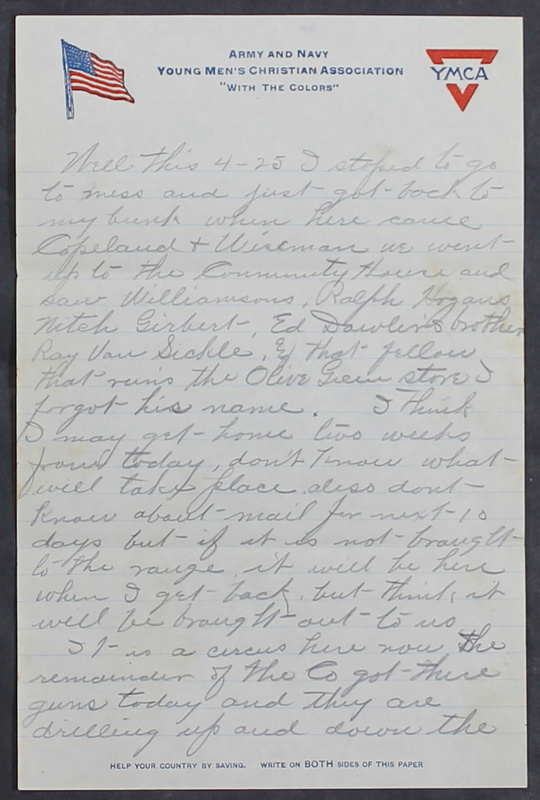 ARMY AND NAVY
YOUNG MEN'S CHRISTIAN ASSOCIATION
"WITH THE COLORS"
YMCA
Well this 4-25 I stoped to go
to mess and just got back to
my bunk when here came
Copeland & Wiseman we went
up to the Community House and
saw Williamsons, Ralph Hogans
Mitch Girbert, Ed Dawlins brother
Ray Van Sickle, & that fellow
that runs the Olive Green store I
forgot his name. I think
I may get home two weeks
from today, don't know what
will take place. also dont
know about mail for next 10
days but if it is not brought
to the range, it will be here
when I get back, but think it
will be brought out to us
It is a circus here now the
remainder of the Co got there
guns today and they are
drilling up and down the
HELP YOUR COUNTRY BY SAVING. WRITE ON BOTH SIDES OF THIS PAPER